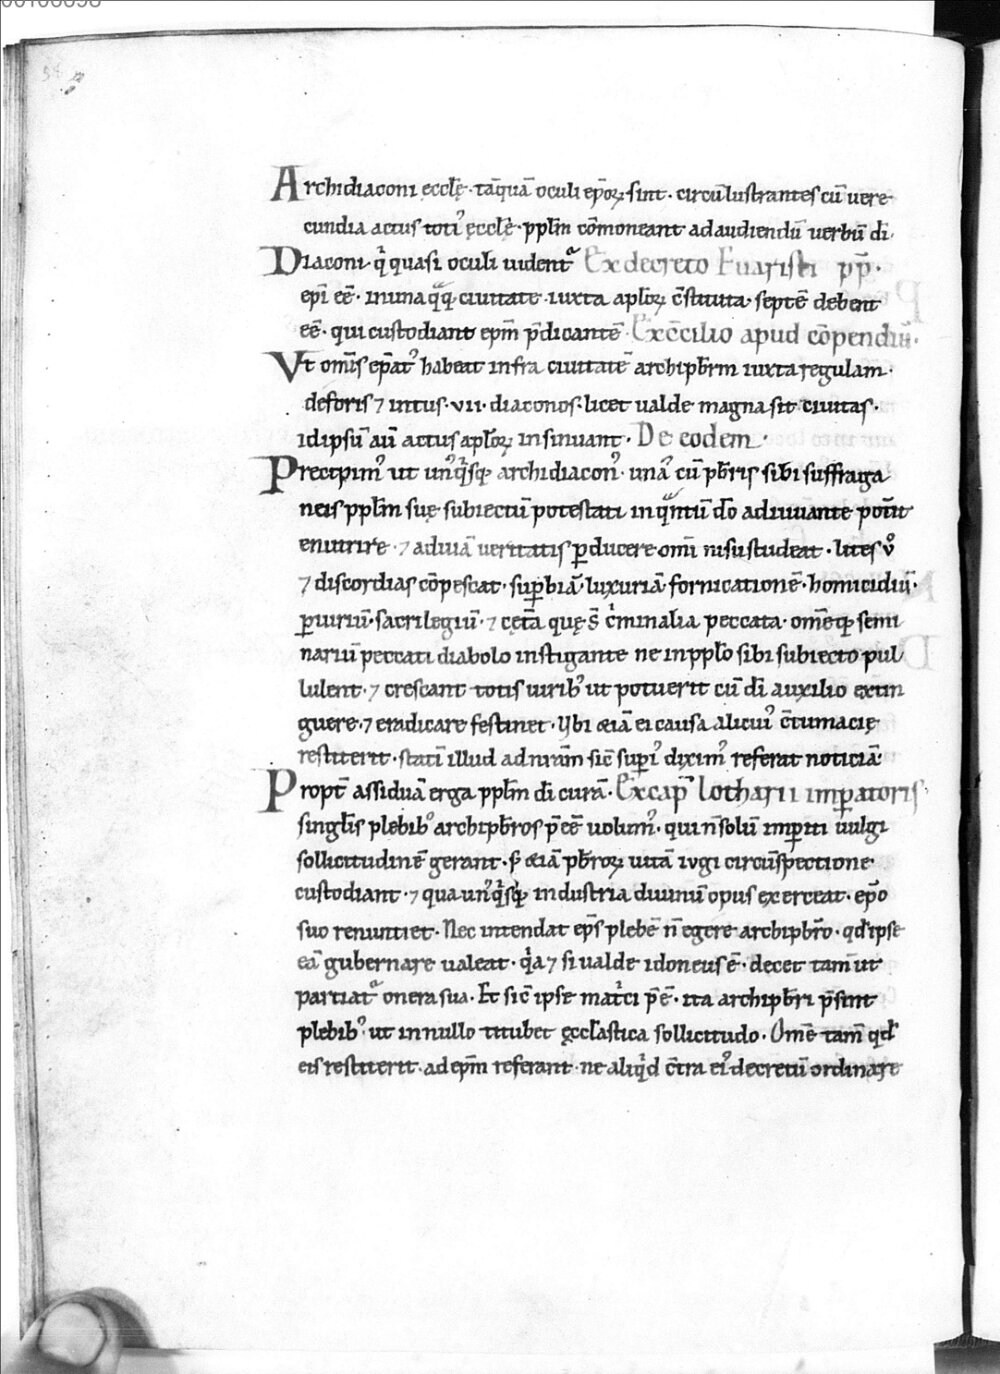 Archidiaconi ęcclę̄· tāquā oculi ep̄oꝝ sint· circūlustrantes cū uere
cundia actus totiꝰ ęcclę̄· ppl̄m cōmoneant ad audiendū uerbū di͞·
Diaconi· q̇ quasi oculi uidentᷣ Ex decreto Euaristi pp̄·
epī eē· in unaq̇q; ciuitate· iuxta apl̄oꝝ c̄stituta· septē debent
eē· qui custodiant ep̄m p̄dicantē· Ex c̄cilio apud cōpendiū·
Vt om̄s ep̄atꝰ habeat infra ciuitatē archipb̄rm iuxta regulam·
deforis ⁊ intus· vii· diaconos· licet ualde magna sit ciuitas·
idipsū aū actus apl̄oꝝ insinuant· De eodem·
Precipimꝰ ut unꝰq̇sq; archidiaconꝰ· unaꝰ cū pb̄ris sibi suffraga
neis ppl̄m suę subiectū potestati in q̇ntū do͞ adiuuante potūit
enutrire· ⁊ ad uiā ueritatis ꝑducere om̄i nisu studeat· lites v̊
⁊ discordias cōpescat· suꝑbiā· luxuriā· fornicationē· homicidiū·
ꝑiuriū· sacrilegiū· ⁊ cęt̄a quę s̄ ċminalia peccata· om̄eq; semi
nariū peccati diabolo instigante ne in ppl̄o sibi subiecto pul
lulent· ⁊ crescant totis uiribꝰ ut potuerit cū di͞ auxilio extin
guere· ⁊ eradicare festinet· Vbi &iā ei causa alicuiꝰ c̄tumacię
restiterit· statī illud ad nr̄am sic̄ suꝑiꝰ diximꝰ referat noticiā·
Propt̄ assiduā erga ppl̄m di͞ curā· Ex cap̄ lotharii imꝑatoris
singl̄is plebibꝰ archipb̄ros p̄eē uolumꝰ· qui n̄ solū imꝑiti uulgi
sollicitudinē gerant· s; &iā pb̄roꝝ uitā iugi circūspectione
custodiant· ⁊ qua unꝰq̇sq; industria diuinū opus exerceat· ep̄o
suo renuntiet· Nec intendat ep̄s plebē n̄ egere archipb̄ro· qd̄ ipse
eā gubernare ualeat· q̇a ⁊ si ualde idoneus ē· decet tam̄ ut
partiatᷣ onera sua· Et sic̄ ipse maṫci p̄ē· ita archipb̄ri p̄sint
plebibꝰ· ut in nullo titubet ęccl̄astica sollicitudo· Om̄e tam̄ qd̄
eis restiterit· ad ep̄m referant· ne aliq̇d c̄tra eiꝰ decretū ordinare